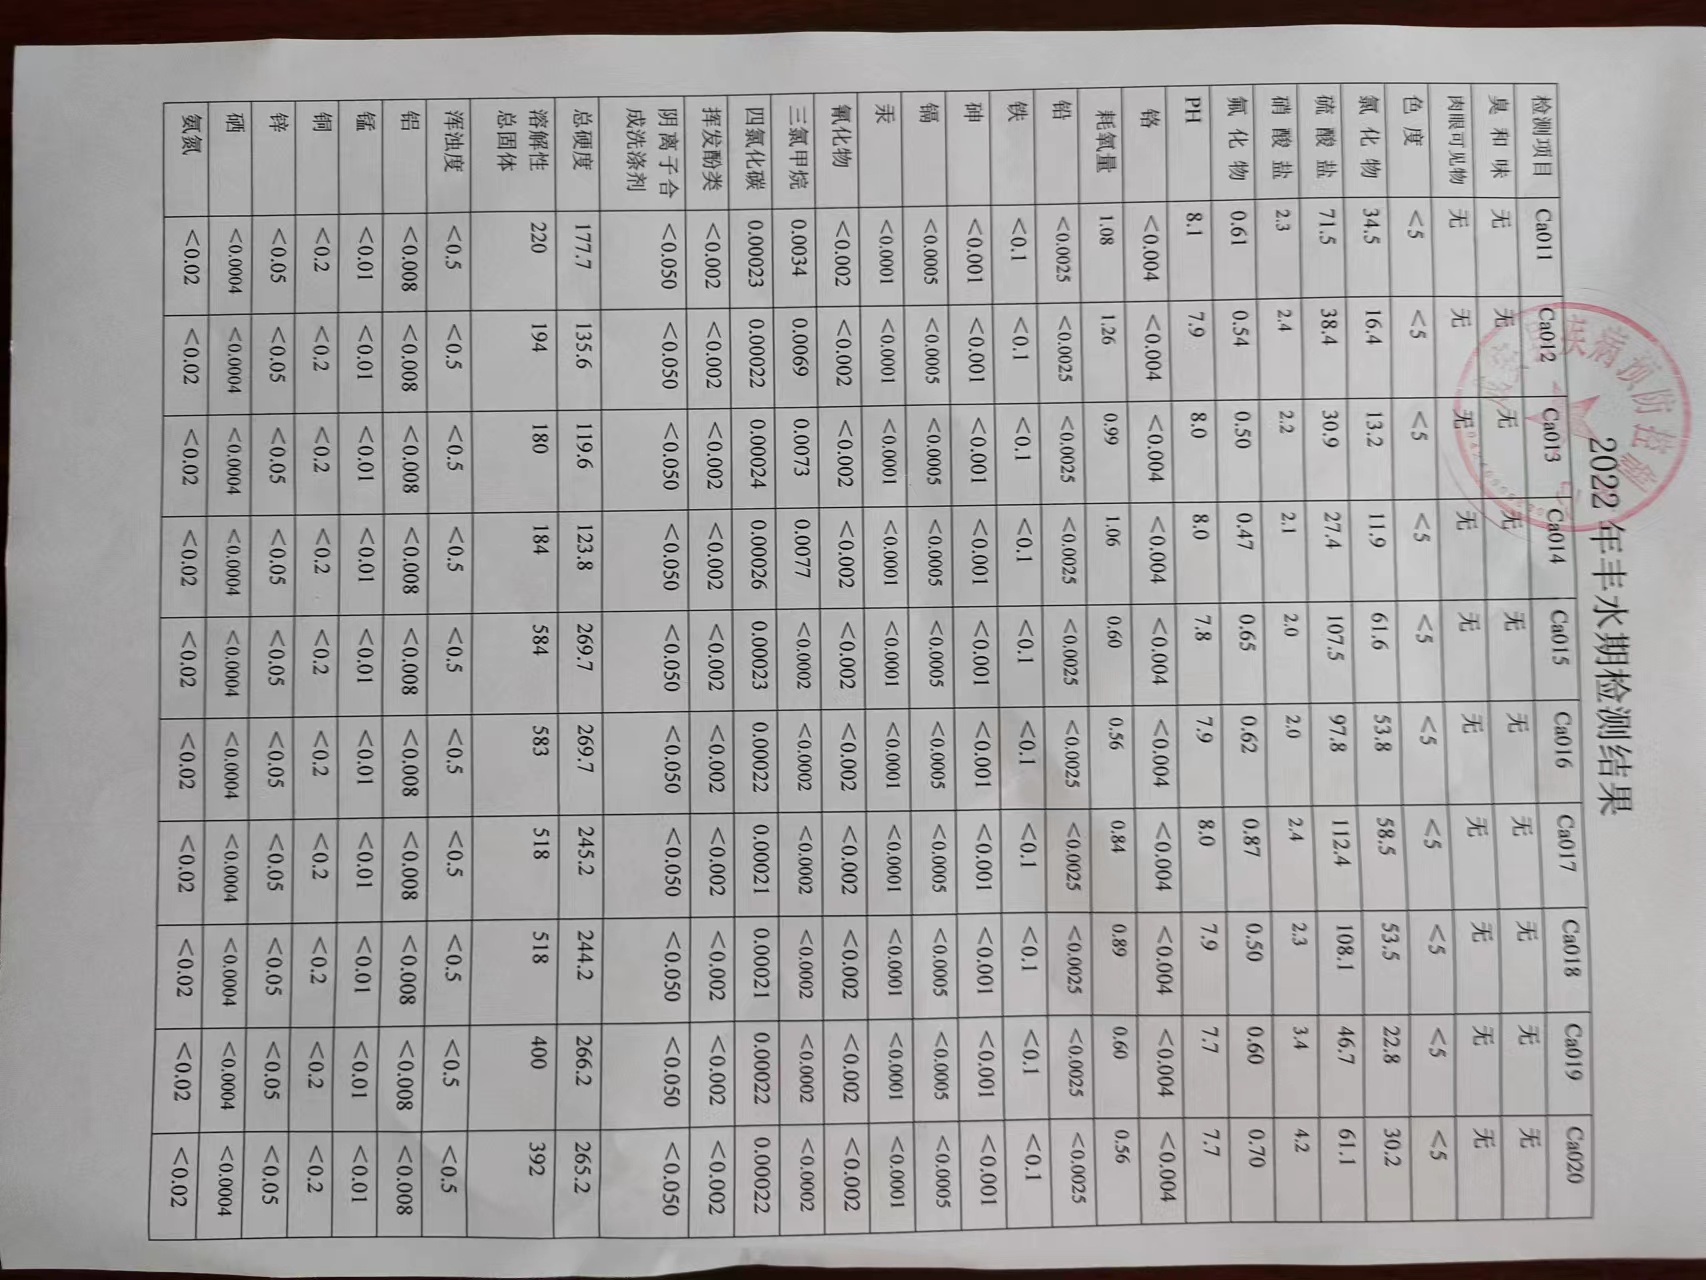 2022年丰水期检测结果
检测项目 Ca011 Ca012 Ca013 Ca014 Ca015 Ca016 Ca017 Ca018 Ca019 Ca020
臭和味 无 无 无 无 无 无 无 无 无 无
肉眼可见物 无 无 无 无 无 无 无 无 无 无
色度 <5 <5 <5 <5 <5 <5 <5 <5 <5 <5
氯化物 34.5 16.4 13.2 11.9 61.6 53.8 58.5 53.5 22.8 30.2
硫酸盐 71.5 38.4 30.9 27.4 107.5 97.8 112.4 108.1 46.7 61.1
硝酸盐 2.3 2.4 2.2 2.1 2.0 2.0 2.4 2.3 3.4 4.2
氟化物 0.61 0.54 0.50 0.47 0.65 0.62 0.87 0.50 0.60 0.70
PH 8.1 7.9 8.0 8.0 7.8 7.9 8.0 7.9 7.7 7.7
铬 <0.004 <0.004 <0.004 <0.004 <0.004 <0.004 <0.004 <0.004 <0.004 <0.004
耗氧量 1.08 1.26 0.99 1.06 0.60 0.56 0.84 0.89 0.60 0.56
铅 <0.0025 <0.0025 <0.0025 <0.0025 <0.0025 <0.0025 <0.0025 <0.0025 <0.0025 <0.0025
铁 <0.1 <0.1 <0.1 <0.1 <0.1 <0.1 <0.1 <0.1 <0.1 <0.1
砷 <0.001 <0.001 <0.001 <0.001 <0.001 <0.001 <0.001 <0.001 <0.001 <0.001
镉 <0.0005 <0.0005 <0.0005 <0.0005 <0.0005 <0.0005 <0.0005 <0.0005 <0.0005 <0.0005
汞 <0.0001 <0.0001 <0.0001 <0.0001 <0.0001 <0.0001 <0.0001 <0.0001 <0.0001 <0.0001
氰化物 <0.002 <0.002 <0.002 <0.002 <0.002 <0.002 <0.002 <0.002 <0.002 <0.002
三氯甲烷 0.0034 0.0069 0.0073 0.0077 <0.0002 <0.0002 <0.0002 <0.0002 <0.0002 <0.0002
四氯化碳 0.00023 0.00022 0.00024 0.00026 0.00023 0.00022 0.00021 0.00021 0.00022 0.00022
挥发酚类 <0.002 <0.002 <0.002 <0.002 <0.002 <0.002 <0.002 <0.002 <0.002 <0.002
阴离子合
成洗涤剂 <0.050 <0.050 <0.050 <0.050 <0.050 <0.050 <0.050 <0.050 <0.050 <0.050
总硬度 177.7 135.6 119.6 123.8 269.7 269.7 245.2 244.2 266.2 265.2
溶解性
总固体 220 194 180 184 584 583 518 518 400 392
浑浊度 <0.5 <0.5 <0.5 <0.5 <0.5 <0.5 <0.5 <0.5 <0.5 <0.5
铝 <0.008 <0.008 <0.008 <0.008 <0.008 <0.008 <0.008 <0.008 <0.008 <0.008
锰 <0.01 <0.01 <0.01 <0.01 <0.01 <0.01 <0.01 <0.01 <0.01 <0.01
铜 <0.2 <0.2 <0.2 <0.2 <0.2 <0.2 <0.2 <0.2 <0.2 <0.2
锌 <0.05 <0.05 <0.05 <0.05 <0.05 <0.05 <0.05 <0.05 <0.05 <0.05
硒 <0.0004 <0.0004 <0.0004 <0.0004 <0.0004 <0.0004 <0.0004 <0.0004 <0.0004 <0.0004
氨氮 <0.02 <0.02 <0.02 <0.02 <0.02 <0.02 <0.02 <0.02 <0.02 <0.02
疾病预防控制